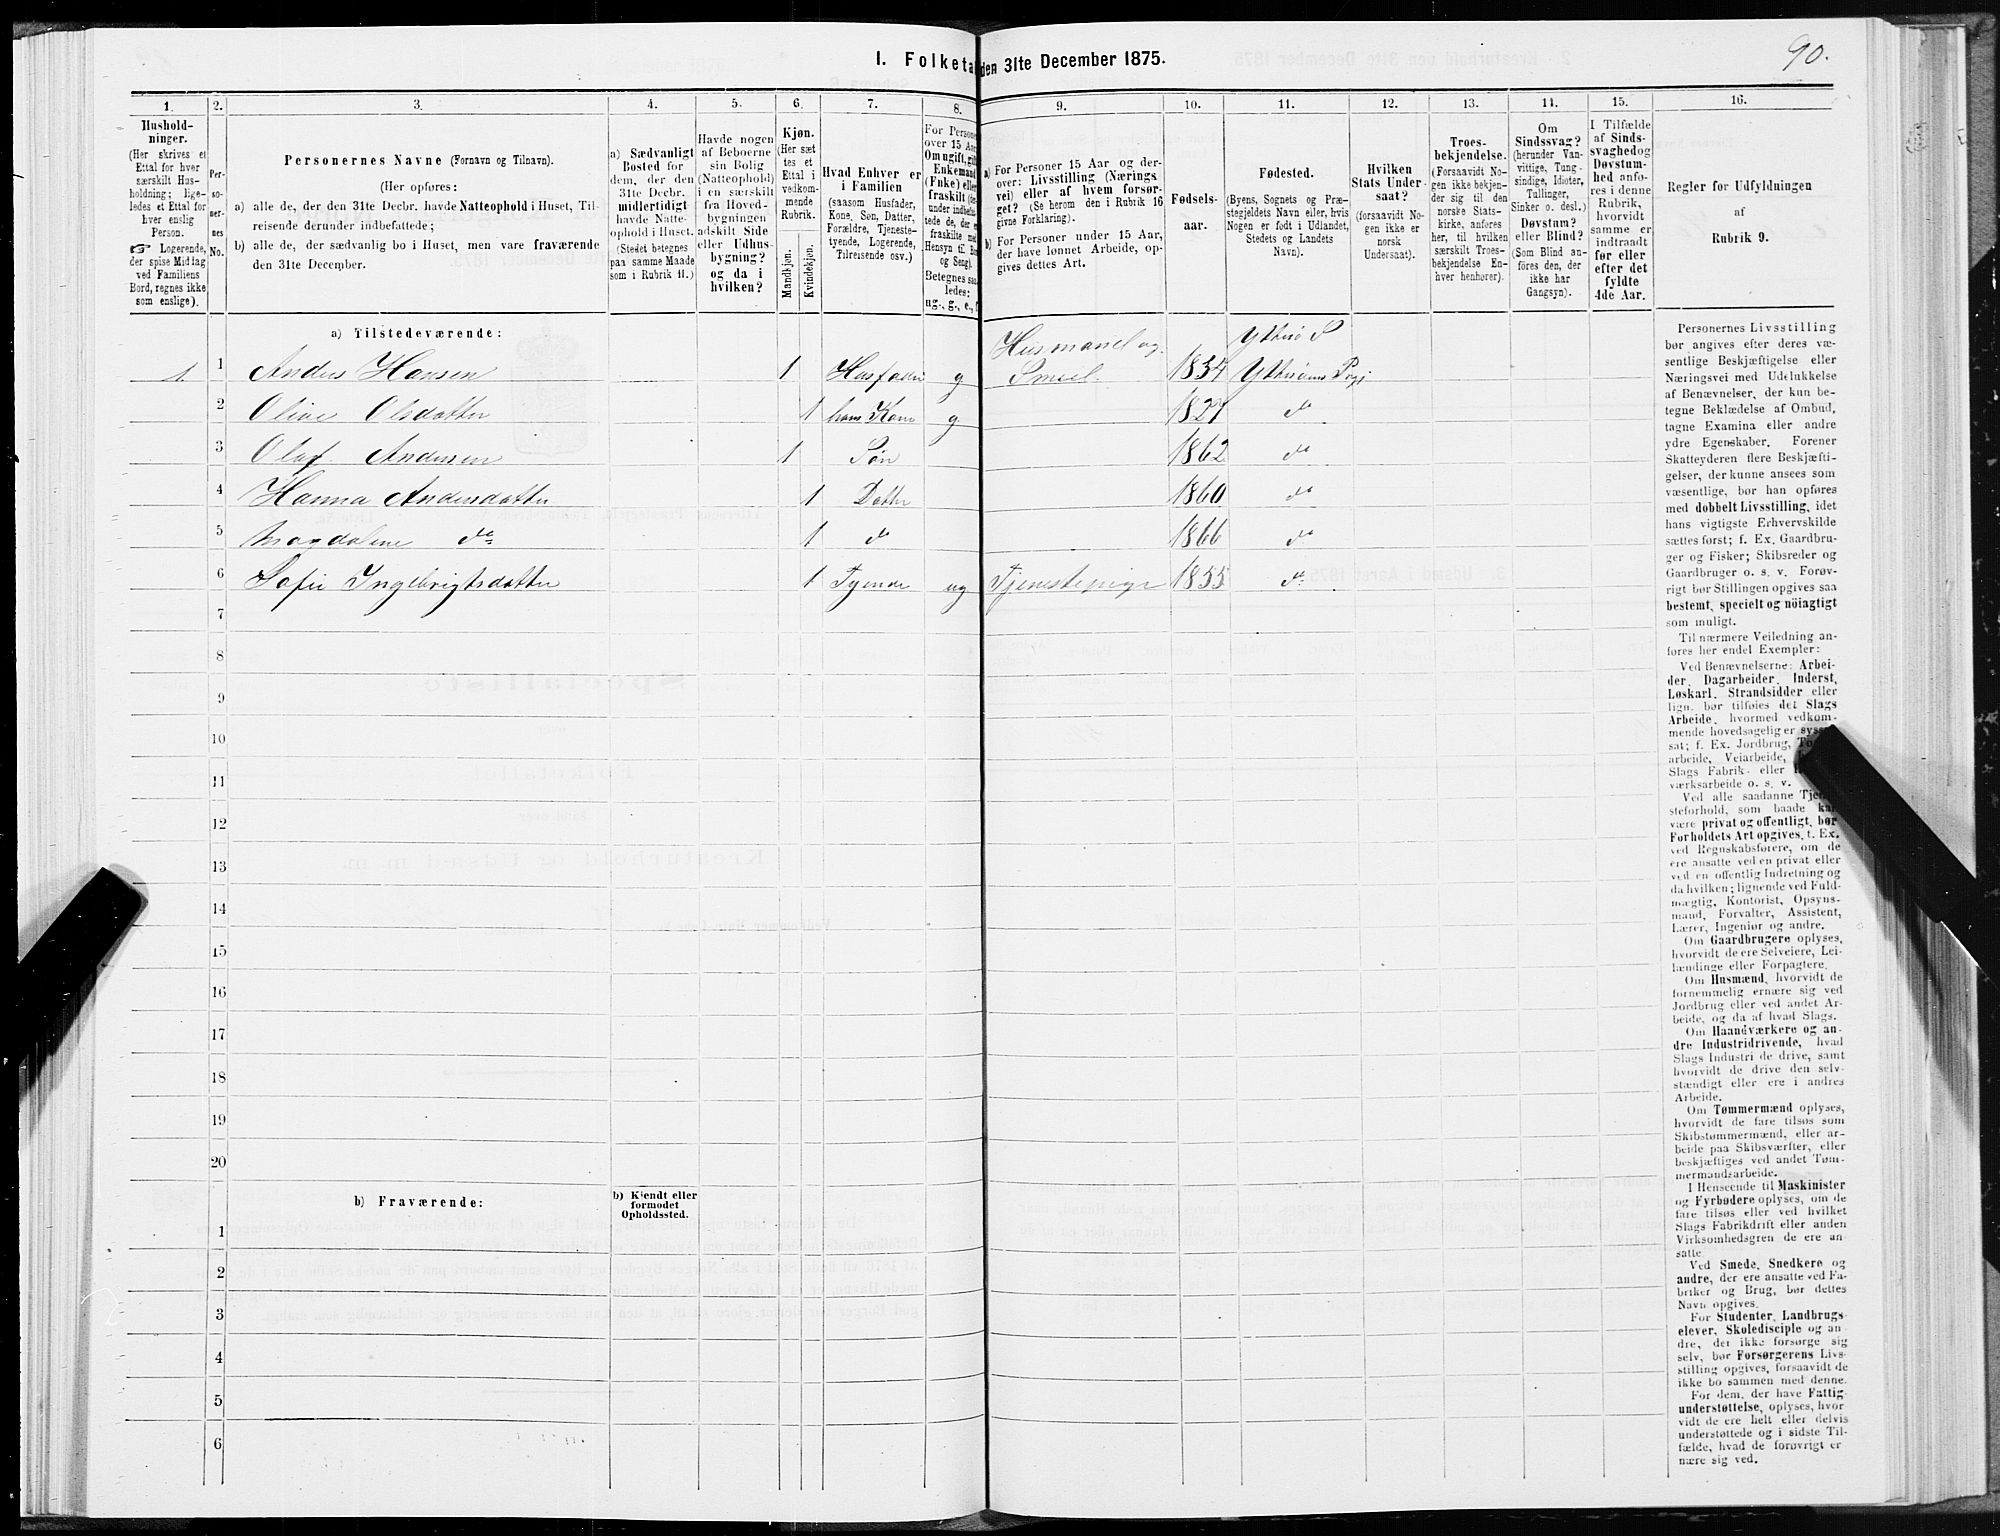 90.
I. Folketa
den 31te December 1875.
1.
Hushold-
ninger.
(Her skrives et
Ettal for hver
særskilt Hus-
holdning; lige-
ledes et Ettal for
hver enslig
Person.
Logerende,
der spise Middag
ved Familiens
Bord, regnes ikke
som enslige).
2.
Per-
so-
ner-
nes
No.
3.
Personernes Navne (Fornavn og Tilnavn).
(Her opføres:
a) alle de, der den 31te Decbr. havde Natteophold i Huset, Til-
reisende derunder indbefattede;
b) alle de, der sædvanlig bo i Huset, men vare fraværende
den 31te December.
4.
a) Sædvanligt
Bosted for
dem, der den
31te Decbr.
midlertidigt
havde Natte-
ophold i Huset.
(Stedet betegnes
paa samme Maade
som i Rubrik 11.)
5.
Havde nogen
af Beboerne
sin Bolig
(Natteophold)
i en særskilt
fra Hoved-
bygningen
adskilt Side
eller Udhus-
bygning?
og da i
hvilken?
6.
Kjøn.
(Her sæt
tes et
Ettal i
vedkom-
mende
Rubrik.
Mandkjøn.
Kvindekjøn.
7.
Hvad Enhver er
i Familien
(saasom Husfader,
Kone, Søn, Datter,
Forældre, Tjeneste-
tyende, Logerende,
Tilreisende osv.)
8.
For Persone
over 15 Aar
Om ugift, gift
Enkemand
(Enke) eller
fraskilt
Betegnes saa-
ledes:
ug., g., e.,
9.
a) For Personer 15 Aar og der-
over: Livsstilling (Nærings
vei) eller af hvem forsør-
get? (Se herom den i Rubrik 16
givne Forklaring).
b) For Personer under 15 Aar,
der have lønnet Arbeide, op-
gives dettes Art.
10.
Fødsels-
aar.
11.
Fødested.
(Byens, Sognets og Præ-
stegjeldets Navn eller, hvis
Nogen er født i Udlandet,
Stedets og Landets
Navn).
12.
Hvilken
Stats Under-
saat?
(forsaavidt No-
gen ikke er
norsk
Undersaat).
13.
Troes-
bekjendelse.
(Forsaavidt No-
gen ikke bekjen-
der sig til den
norske Stats-
kirke, anføres
her, til hvilken
særskilt Troes-
bekjendelse En-
hver henhører).
14.
Om
Sindssvag?
(herunder Van-
vittige, Tung-
sindige, Idioter,
Tullinger,
Sinker o. desl.)
Døvstum?
eller Blind?
(Som Blind an-
føres den, der
ikke har
Gangsyn).
15.
I Tilfælde
af Sinds-
svaghed og
Døvstum-
hed anfø-
res i denne
Rubrik,
hvorvidt
samme er
indtraadt
før eller
efter det
fyldte
4de Aar.
16.
Regler for Udfyldningen
af
Rubrik 9.
a) Tilstedeværende:
Husmand og Ytterø S
1 1 Anders Hansen 1 Husfader g Smed. 1834 Ytterøens Pregj
2 Oline Olsdatter 1 hans Kone g 1827 do
3 Olaf Andersen 1 Søn 1862 do
4 Hanna Andersdatter 1 Datter 1860 do
5 Magdalene do 1 do 1866 do
6 Sofie Ingebrigtsdatter 1 Tyende ug Tjenestepige 1855 do
7
8
9
10
11
12
13
14
15
16
17
18
19
20
b) Fraværende:
b) Kjendt eller
formodet
Opholdssted.
1
2
3
4
5
6
Personernes Livsstilling
bør angives efter deres væ-
sentlige Beskjæftigelse eller
Næringsvei med Udelukkelse
af Benævnelser, der kun be-
tegne Beklædelse af Ombud,
tagne Examina eller andre
ydre Egenskaber. Forener
Skatteyderen flere Beskjæfti-
gelser, der kunne ansees som
væsentlige, bør han opføres
med dobbelt Livsstilling, idet
hans vigtigste Erhvervskilde
sættes først; f. Ex. Gaardbru-
ger og Fisker; Skibsreder og
Gaardbruger o. s. v. Forøv-
rigt bør Stillingen opgives saa
bestemt, specielt og nöiagtigt
som muligt.
Til nærmere Veiledning an-
føres her endel Exempler:
Ved Benævnelserne: Arbei-
der, Dagarbeider, Inderst,
Løskarl, Strandsidder eller
lign. bør tilføies det Slags
Arbeide, hvormed vedkom-
mende hovedsagelig er syssel-
sat; f. Ex. Jordbrug,
arbeide, Veiarbeide,
Slags Fabrik- eller
værksarbeide o. s. v.
Ved alle saadanne Tjene-
steforhold, som baade kan
være privat og offentligt, bør
Forholdets Art opgives, t. Ex.
ved Regnskabsførere, om de
ere ansatte ved en privat eller
ved en offentlig Indretning og
da hvilken; lignende ved Fuld-
mægtig, Kontorist, Opsyns-
mand, Forvalter, Assistent,
Lærer, Ingeniør og andre.
Om Gaardbrugere oplyses,
hvorvidt de ere Selveiere, Lei-
lændinge eller Forpagtere.
Om Husmænd, hvorvidt de
fornemmelig ernære sig ved
Jordbrug eller ved andet Ar-
beide, og da af hvad Slags.
Om Haandværkere og an-
dre Industridrivende, hvad
Slags Industri de drive, samt
hvorvidt de drive den selv-
stændigt eller ere i andres
Arbeide.
Om Tømmermænd oplyses,
hvorvidt de fare tilsøs som
Skibstømmermænd, eller ar-
beide paa Skibsværfter, eller
beskjæftiges ved andet Tøm-
mermandsarbeide.
I Henseende til Maskinister
og Fyrbødere oplyses, om de
fare tilsøs eller ved hvilket
Slags Fabrikdrift eller anden
Virksomhedsgren de ere an-
satte.
Ved Smede, Snedkere og
andre, der ere ansatte ved Fa-
briker og Brug, bør dettes
Navn opgives.
For Studenter, Landbrugs-
elever, Skoledisciple og an-
dre, der ikke forsørge sig
selv, bør Forsørgerens Livs-
stilling opgives, forsaavidt de
ikke bo sammen med denne.
For dem, der have Fattig-
understøttelse, oplyses, hvor
vidt de ere helt eller delvis
understøttede og i sidste Til-
fælde, hvad de forøvrigt er
nære sig ved.